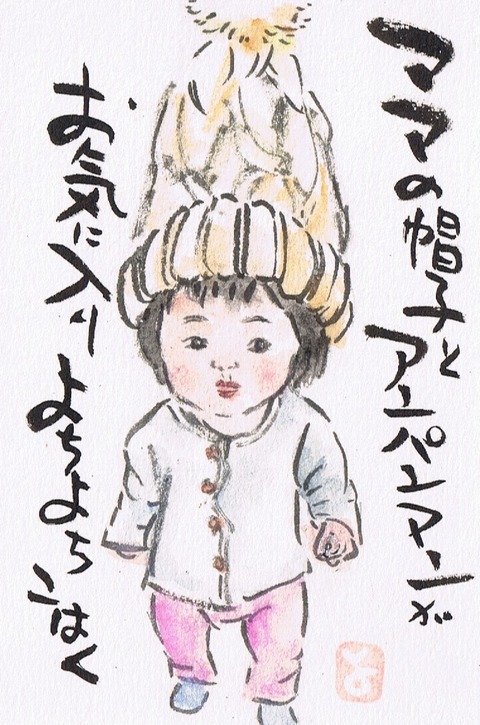 ママの帽子とアンパンマンが
お気に入りよちよちこはく